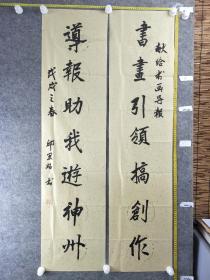 献给书画导报
書畫引領搞創作
導報助我遊神州
戊戌之春